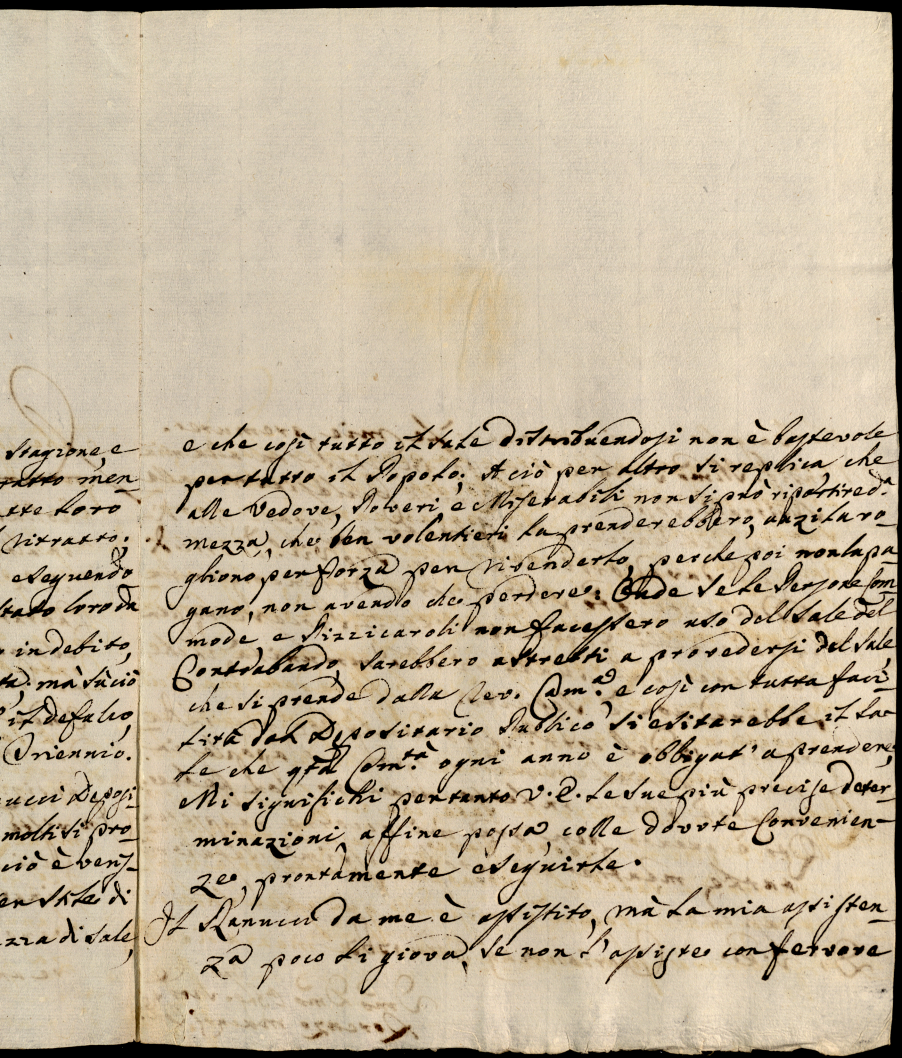 Stagione, e
tratto men-
tte loro
ritratto;
eseguendo
ltato loro da
indebito,
ta, mà sù ciò
il defalco,
Triennio.
nucci Deposi-
molti si pro-
ciò è veris-
er stile di
azza di sale,
e che così tutto il sale distribuendosi non è bastevole
per tutto il Popolo; A ciò per altro si replica, che
alle Vedove, Poveri, e Miserabili non si può ripartire d.ᵃ
mezza, che ben volentieri la prenderebbero, anzi la vo-
gliono per forza per rivenderlo, perche poi non la pa-
gano, non avendo che perdere: Onde se le Persone Com-
mode, e Pizzicaroli non facessero uso del sale del
Contrabando, sarebbero astretti a provedersi del sale
che si prende dalla Rev. Cam.ᵃ, e così con tutta faci-
lità dal Depositario Publico si esitarebbe il Sa-
le che q̃sta Com̃.ᵗà ogni anno è obbligat' a prendere;
Mi significhi per tanto V. E. le sue più precise deter-
minazioni, affine possa colle dovute Convenien-
ze, prontamente eseguirle.
Il Ranucci da me è assistito, mà la mia assisten-
za poco li giova, se non l'assiste con fervore